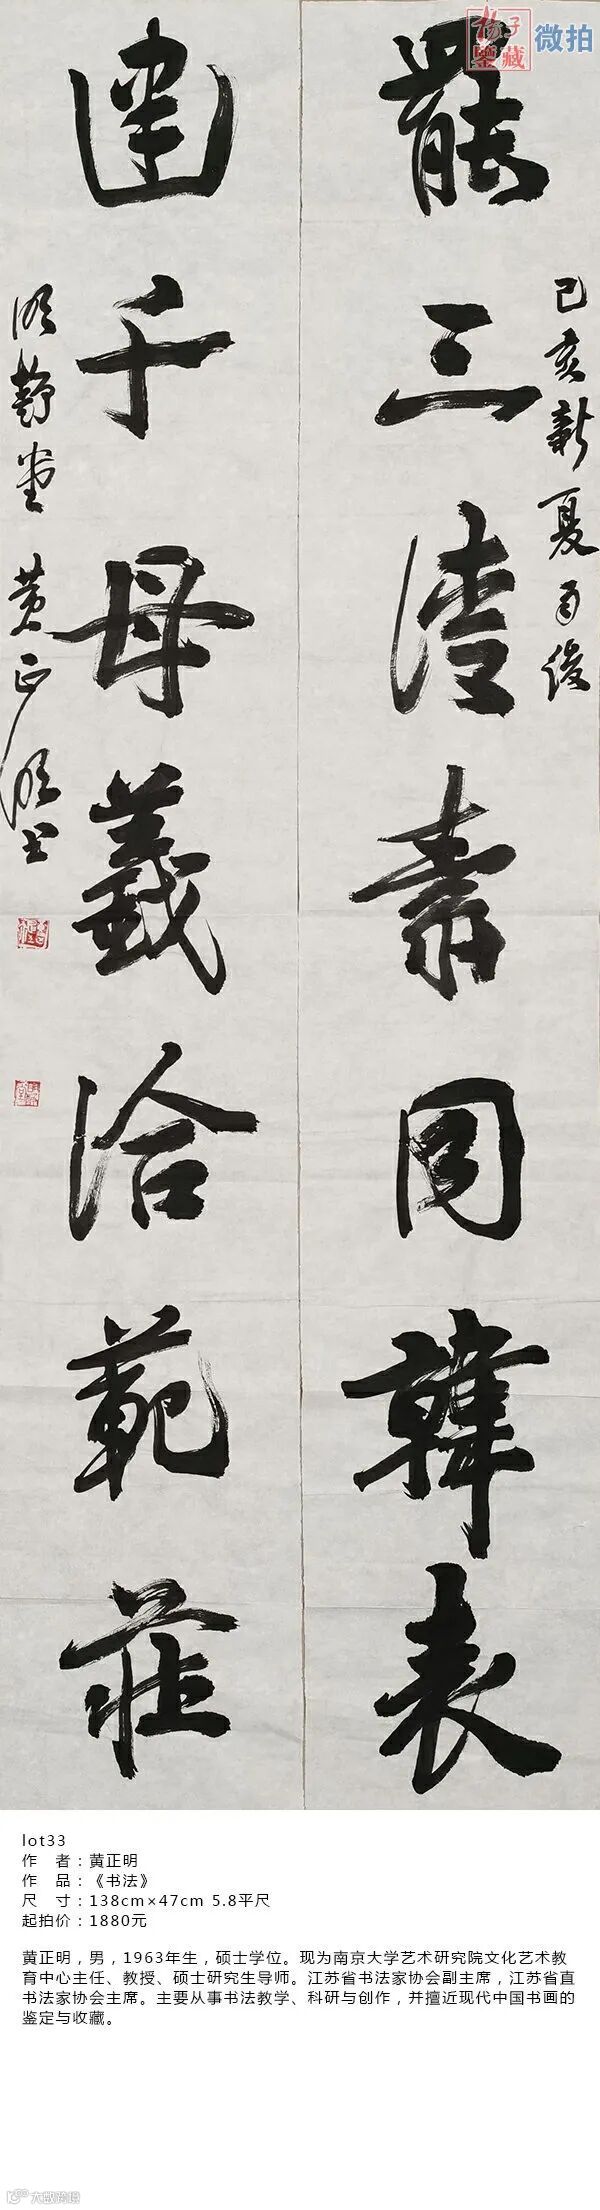 扬子
鑒藏 微拍
罷三清素同韓表
己亥新夏雨後
千母義洽範莊
明靜堂 黄正明書
lot33
作 者：黄正明
作 品：《书法》
尺 寸：138cm×47cm 5.8平尺
起拍价：1880元
黄正明，男，1963年生，硕士学位。现为南京大学艺术研究院文化艺术教
育中心主任、教授、硕士研究生导师。江苏省书法家协会副主席，江苏省直
书法家协会主席。主要从事书法教学、科研与创作，并擅近现代中国书画的
鉴定与收藏。
大数跨境